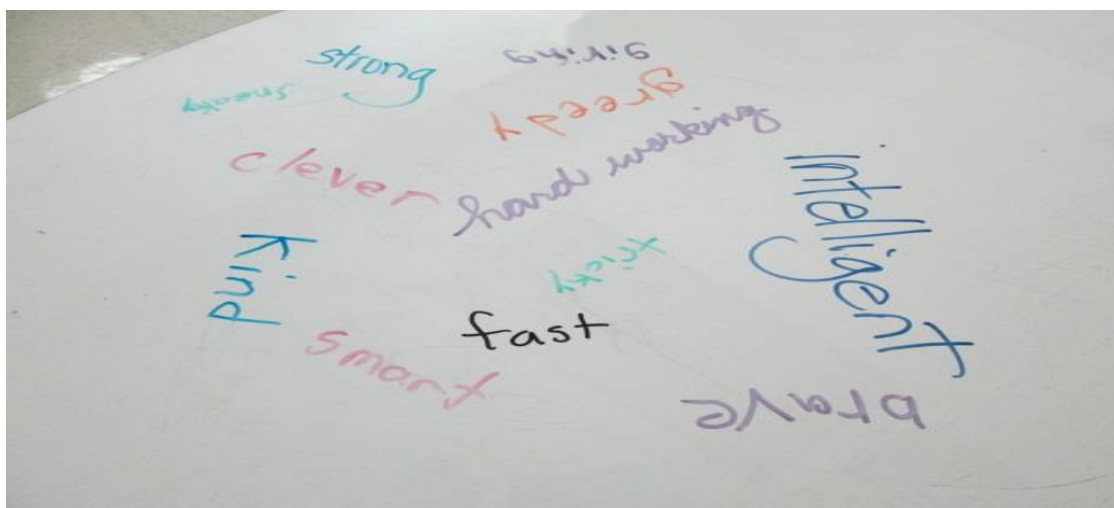 strong
giving
sneaky
greedy
clever
hard working
intelligent
kind
tricky
fast
smart
brave